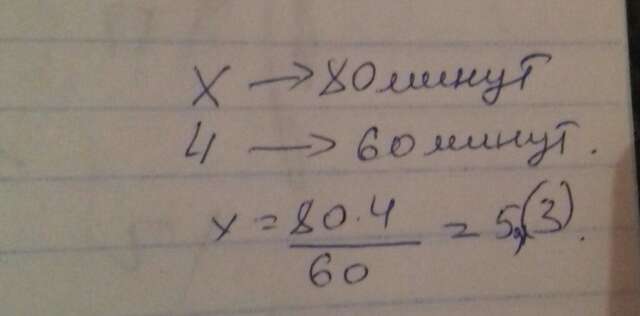 x → 80 минут
4 → 60 минут.
x = 80·4/60 = 5,(3).